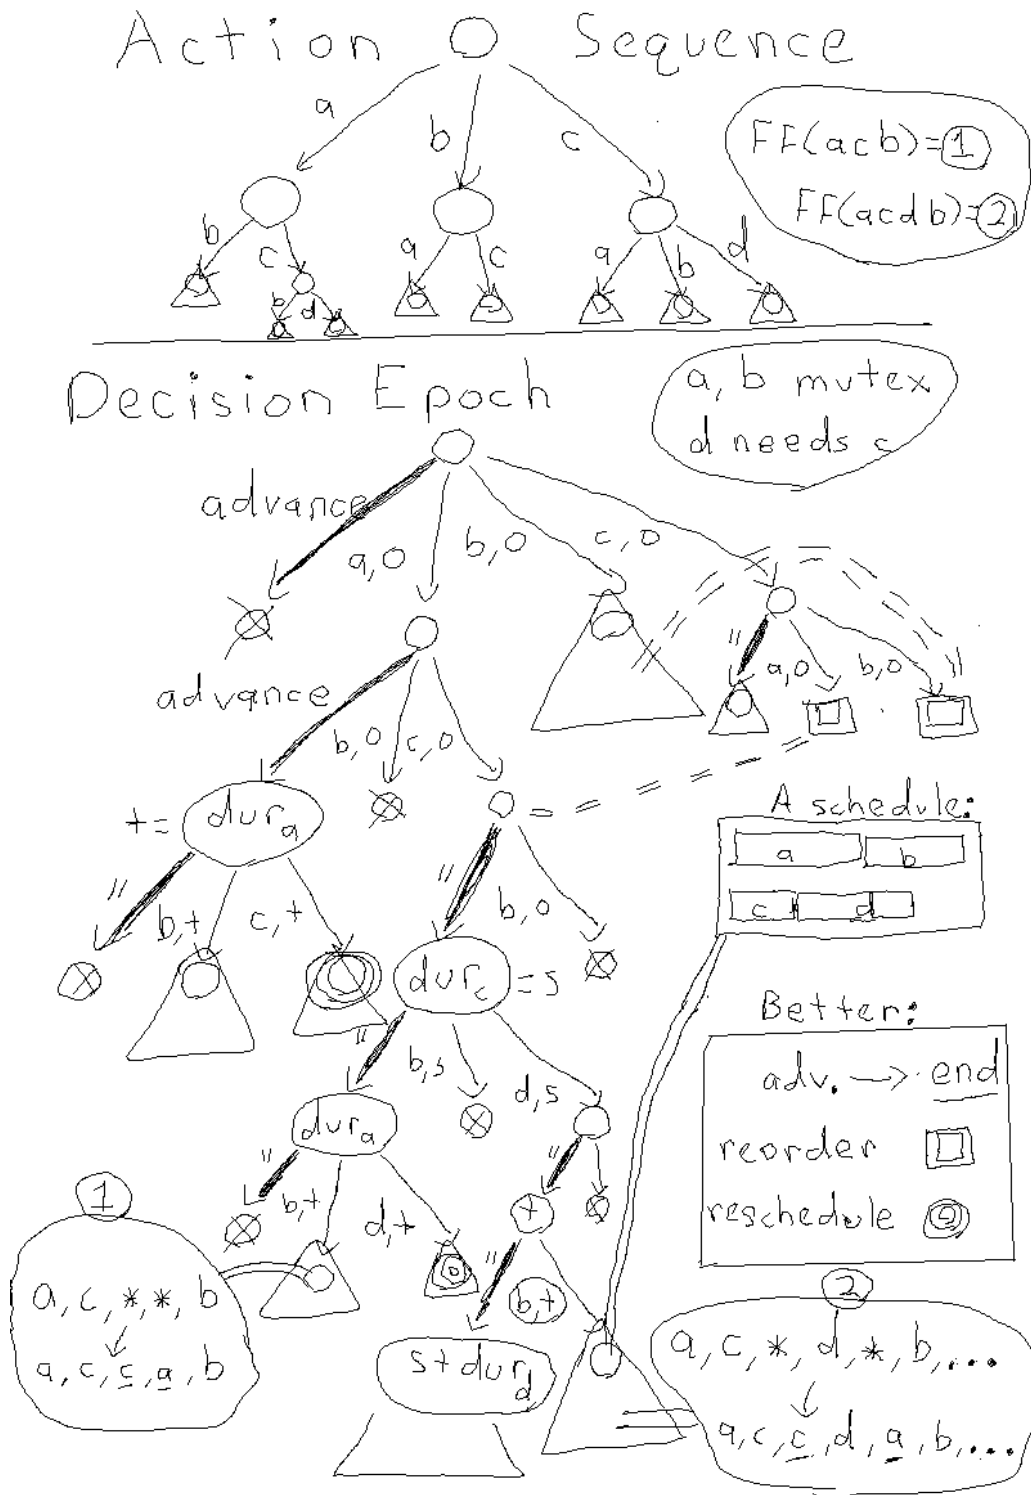 Action Sequence
a
b
c
FF(acb)=1
FF(acdb)=2
b
c
a
c
a
b
d
b
d
Decision Epoch
a, b mutex
d needs c
advance
a,0
b,0
c,0
advance
b,0
c,0
"
a,0
b,0
t= dur_a
"
b,t
c,t
"
b,0
A schedule:
a
b
c
d
dur_c = s
"
b,s
d,s
Better:
adv. → end
reorder
reschedule
dur_a
"
b,t
d,t
"
t
"
b,t
s+dur_d
1
a,c,*,*,b
a,c,c,a,b
2
a,c,*,d,*,b,...
a,c,c,d,a,b,...